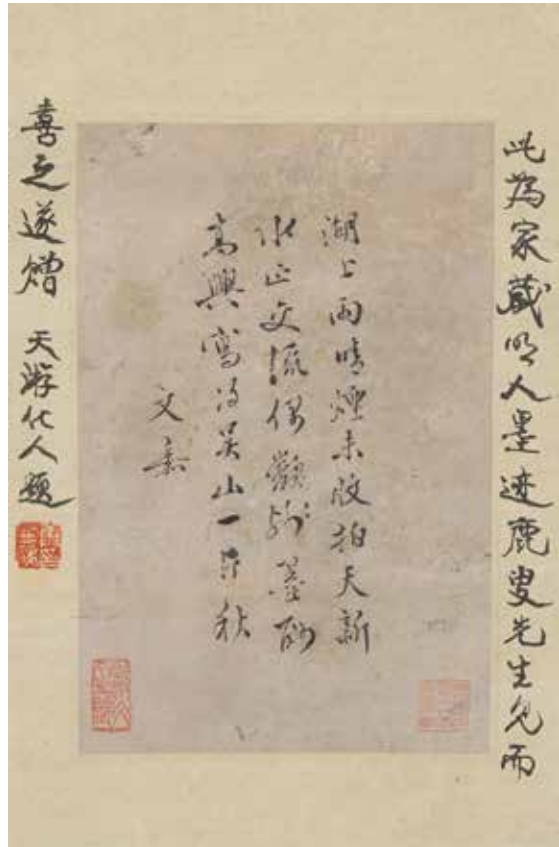 此為家藏明人墨迹鹿叟先生見而
湖上雨晴煙未收拍天新
水正交流偶墨酬
高興寫得吳山一片秋
文嘉
喜之遂贈 天游化人題